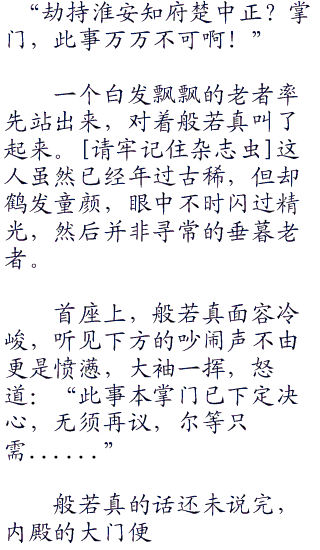 “劫持淮安知府楚中正？掌
门，此事万万不可啊！”
一个白发飘飘的老者率
先站出来，对着般若真叫了
起来。[请牢记住杂志虫]这
人虽然已经年过古稀，但却
鹤发童颜，眼中不时闪过精
光，然后并非寻常的垂暮老
者。
首座上，般若真面容冷
峻，听见下方的吵闹声不由
更是愤懑，大袖一挥，怒
道：“此事本掌门已下定决
心，无须再议，尔等只
需......”
般若真的话还未说完，
内殿的大门便